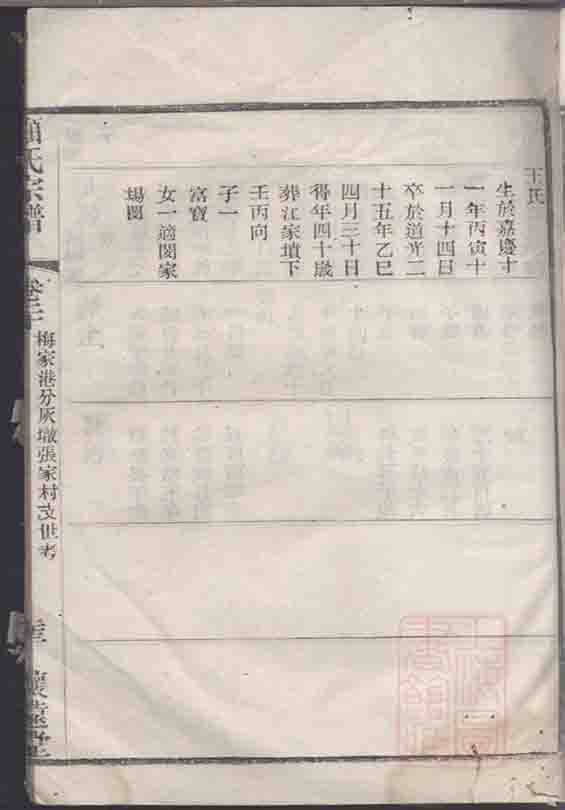 王氏
生於嘉慶十
一年丙寅十
一月十四日
卒於道光二
十五年乙巳
四月三十日
得年四十歲
葬江家墳下
壬丙向
子一
富寶
女一適閔家
場閔
顧氏宗譜
卷三
梅家港分灰墩張家村支世考
懷遠堂